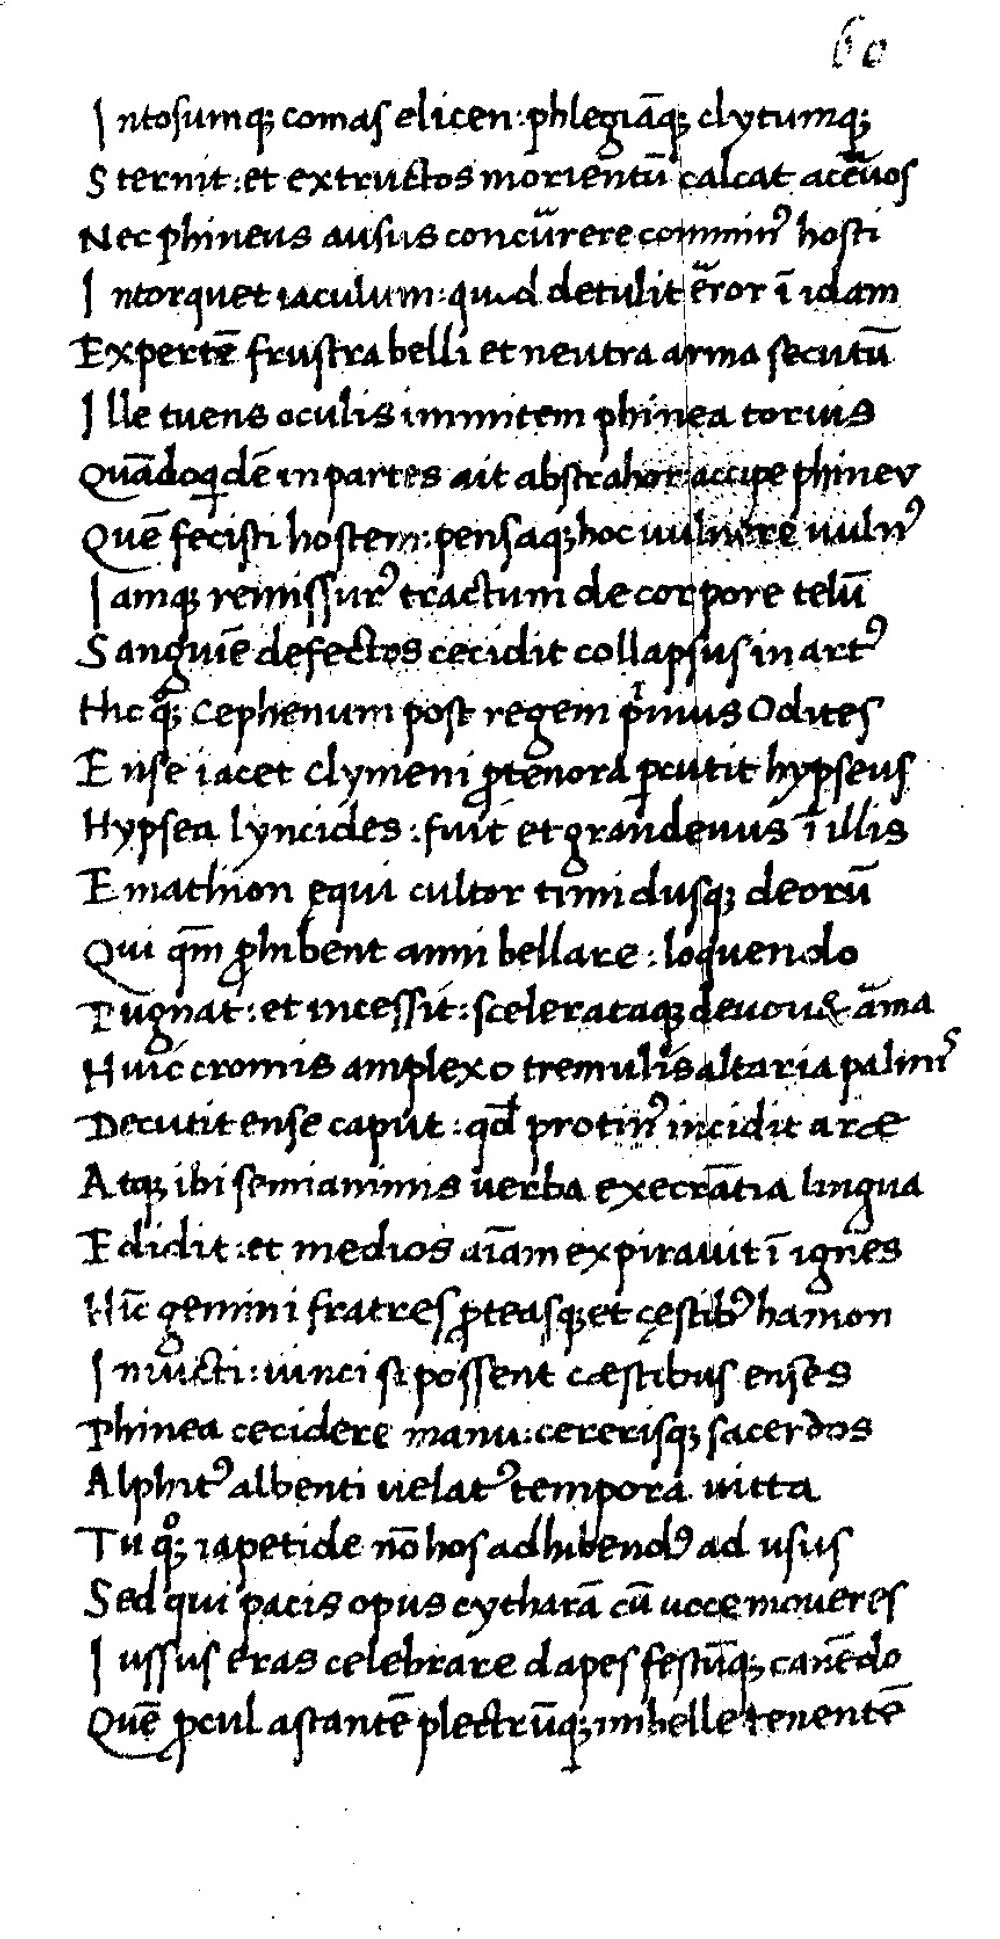 60
Intosumq; comas elicen: phlegiāq; clytumq;
Sternit: et extructos morientū calcat aceruos
Nec phineus ausus concurrere comminꝰ hosti
Intorquet iaculum: quod detulit error ī idam
Expertē frustra belli et neutra arma secutū
Ille tuens oculis immitem phinea toruis
Quādoqidē in partes ait abstrahor accipe phineu
Quē fecisti hostem: pensaq; hoc uulnere uulnꝰ
Iamq; remissurꝰ tractum de corpore telū
Sanguiē defectos cecidit collapsus in artꝰ
Hic qͦ; Cephenum post regem pⁱmus Odites
Ense iacet clymeni ꝓtenora ꝑcutit hypseus
Hypsea lyncides: fuit et grandeuus ī illis
Emathion ęqui cultor timidusq; deorū
Qui qm̄ ꝓhibent anni bellare: loquendo
Pugnat: et incessit: scelerataq; deuou& āma
Huic cromis amplexo tremulis altaria palmꝭ
Decutit ense caput: qđ protinꝰ incidit aræ
Atq; ibi semianimis uerba execrātia lingua
Edidit: et medios aīam expirauit ī ignes
Hīc gemini fratres ꝓteasq; et cęstibꝰ hamon
Inuicti: uinci si possent cæstibus enses
Phinea cecidere manu: cererisq; sacerdos
Alphitꝰ albenti uelatꝰ tempora uitta
Tu qͦ; iapetide nō hos adhibendꝰ ad usus
Sed qui pacis opus cytharā cū uoce moueres
Iussus eras celebrare dapes festūq; canēdo
Quē ꝓcul astantē plectrūq; imbelle tenentē